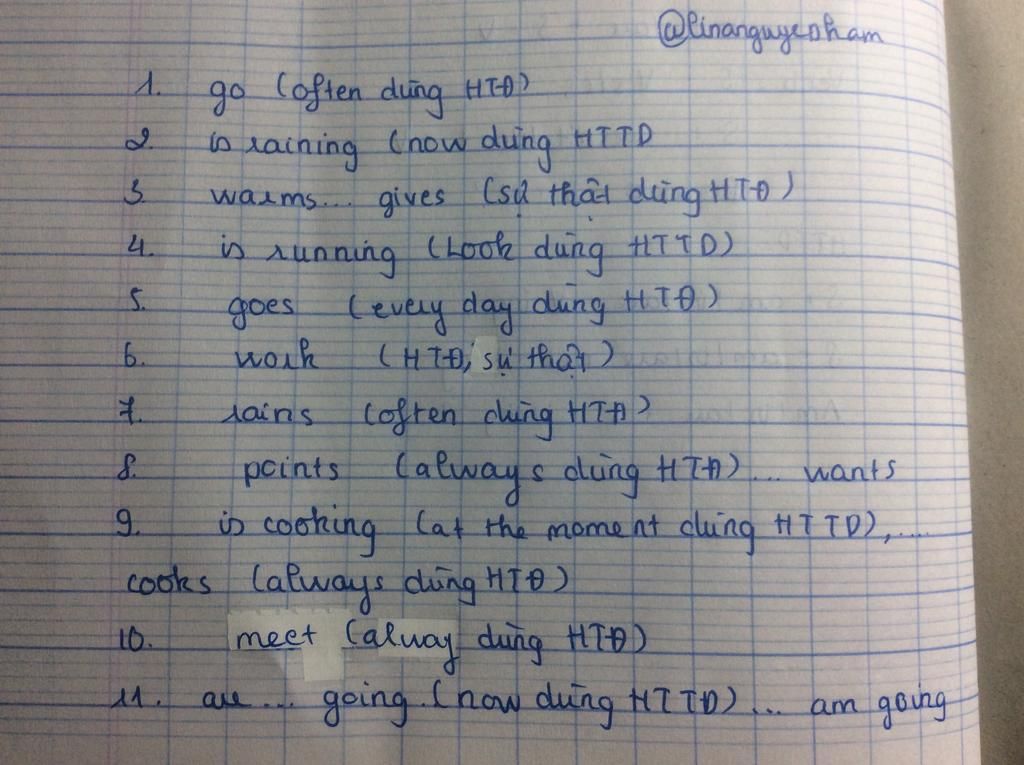 @linanguyenham
1. go (often dùng HTĐ)
2. is raining (now dùng HTTD
3. warms... gives (sự thật dùng HTĐ)
4. is running (Look dùng HTTD)
5. goes (every day dùng HTĐ)
6. work (HTĐ, sự thật)
7. rains (often dùng HTĐ)
8. points (always dùng HTĐ)... wants
9. is cooking (at the moment dùng HTTD),....
cooks (always dùng HTĐ)
10. meet (alway dùng HTĐ)
11. are... going (now dùng HTTD)... am going